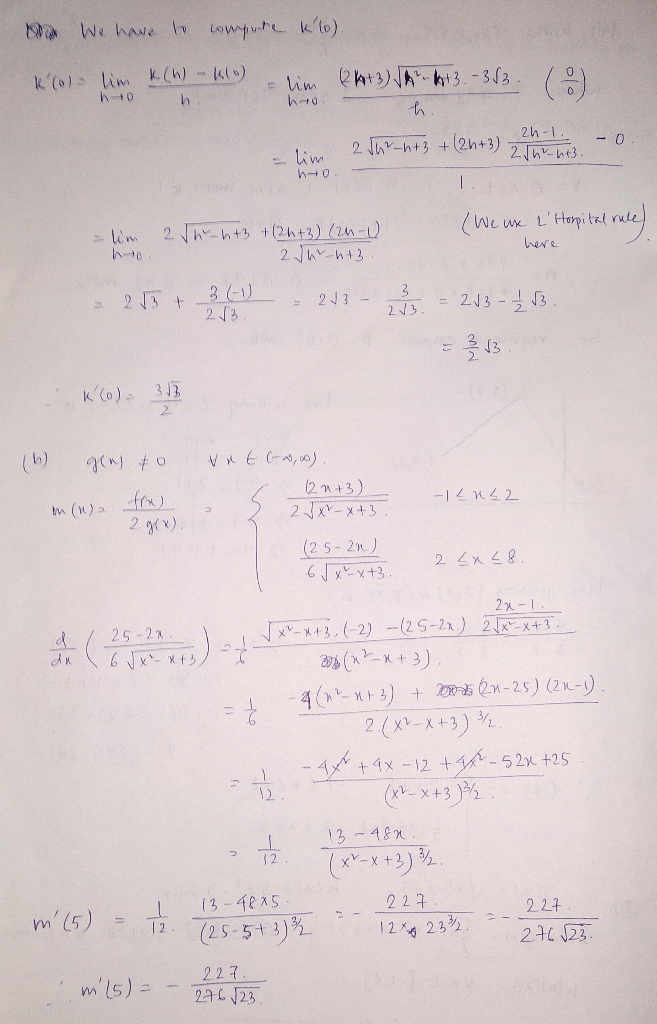 We have to compute k'(0)
k'(0) = lim h→0 k(h) - k(0) / h = lim h→0. (2h+3)√h²-h+3. - 3√3. / h. (0/0)
= lim h→0. 2√h²-h+3 + (2h+3) 2h-1. / 2√h²-h+3. - 0 / 1.
= lim h→0. 2√h²-h+3 + (2h+3)(2h-1) / 2√h²-h+3. (We use L'Hospital rule) here
= 2√3 + 3(-1) / 2√3. = 2√3 - 3 / 2√3. = 2√3 - 1/2 √3.
= 3/2 √3.
∴ k'(0) = 3√3 / 2
(b) g(x) ≠ 0 ∀ x ∈ (-∞,∞).
m(x) = f(x) / 2g(x). = { (2x+3) / 2√x²-x+3. -1 ≤ x ≤ 2
(25-2x) / 6√x²-x+3. 2 ≤ x ≤ 8.
d/dx ( 25-2x. / 6√x²-x+3 ) = 1/6 √x²-x+3.(-2) - (25-2x) 2x-1. / 2√x²-x+3. / (x²-x+3).
= 1/6 -4(x²-x+3) + (2x-25)(2x-1). / 2.(x²-x+3)^3/2.
= 1/12. -4x² + 4x - 12 + 4x² - 52x + 25 / (x²-x+3)^3/2.
= 1/12. 13-48x. / (x²-x+3)^3/2.
m'(5) = 1/12. 13-48×5. / (25-5+3)^3/2 = - 227. / 12× 23^3/2. = - 227. / 276√23.
∴ m'(5) = - 227. / 276√23.